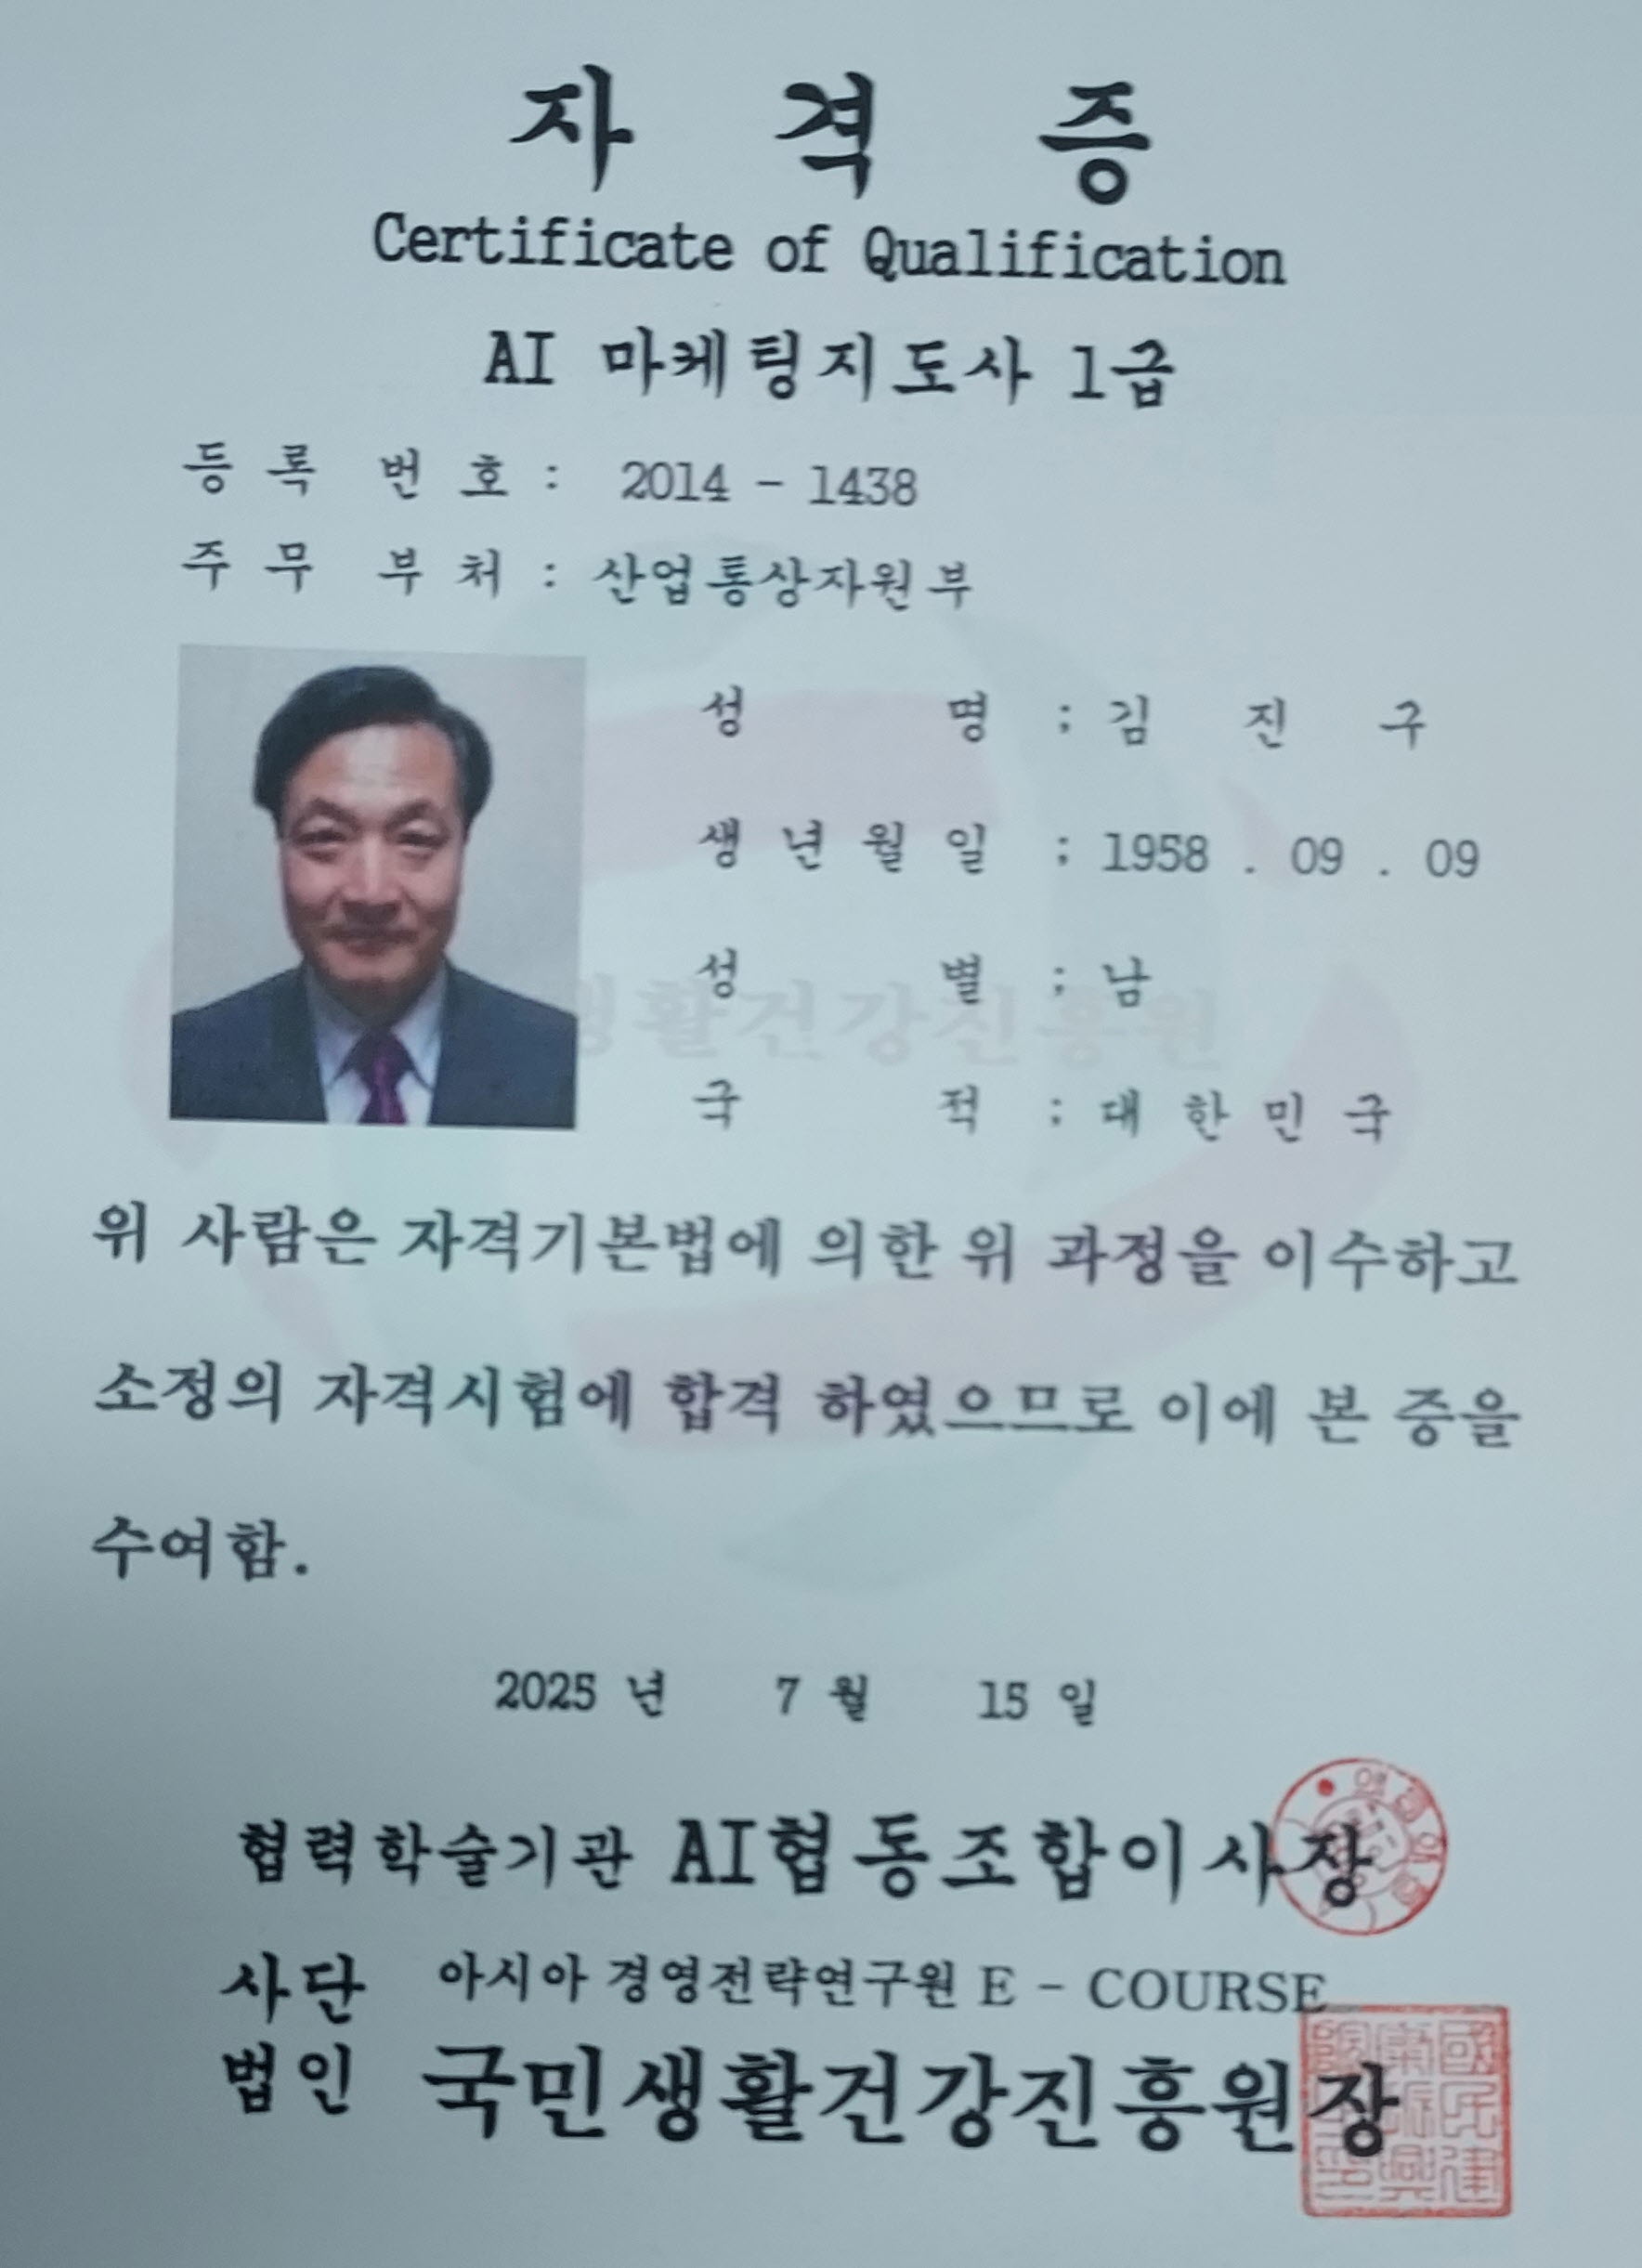 자 격 증
Certificate of Qualification
AI 마케팅지도사 1급
등 록 번 호 : 2014 - 1438
주 무 부 처 : 산업통상자원부
성 명 ; 김 진 구
생 년 월 일 ; 1958 . 09 . 09
성 별 ; 남
국 적 ; 대 한 민 국
생활건강진흥원
위 사람은 자격기본법에 의한 위 과정을 이수하고
소정의 자격시험에 합격 하였으므로 이에 본 증을
수여함.
2025 년 7 월 15 일
협력학술기관 AI협동조합이사장
사단 아시아 경영전략연구원 E - COURSE
법인 국민생활건강진흥원장